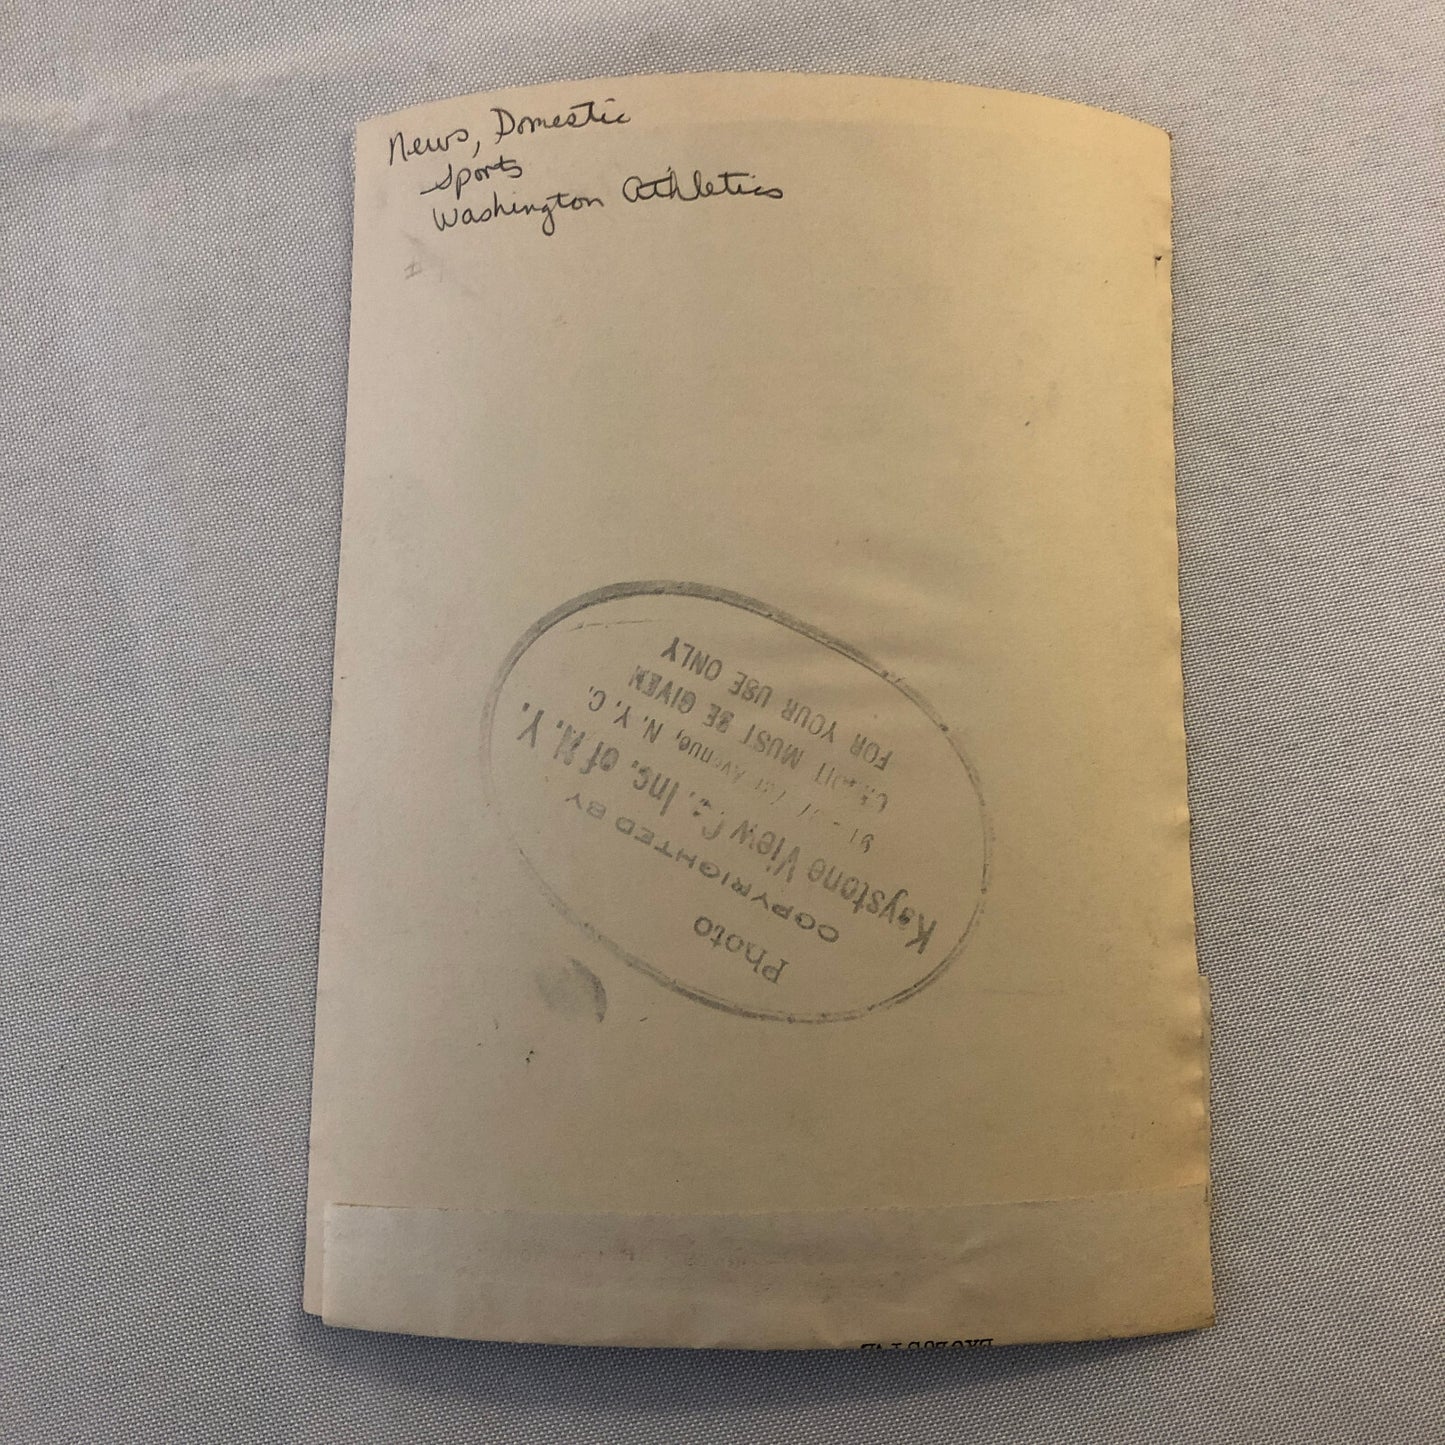 News, Domestic
Sports
Washington Athletics
Photo
COPYRIGHTED BY
Keystone View Co. Inc. of N.Y.
Avenue, N. Y. C.
CREDIT MUST BE GIVEN
FOR YOUR USE ONLY
EXCLUSIVE